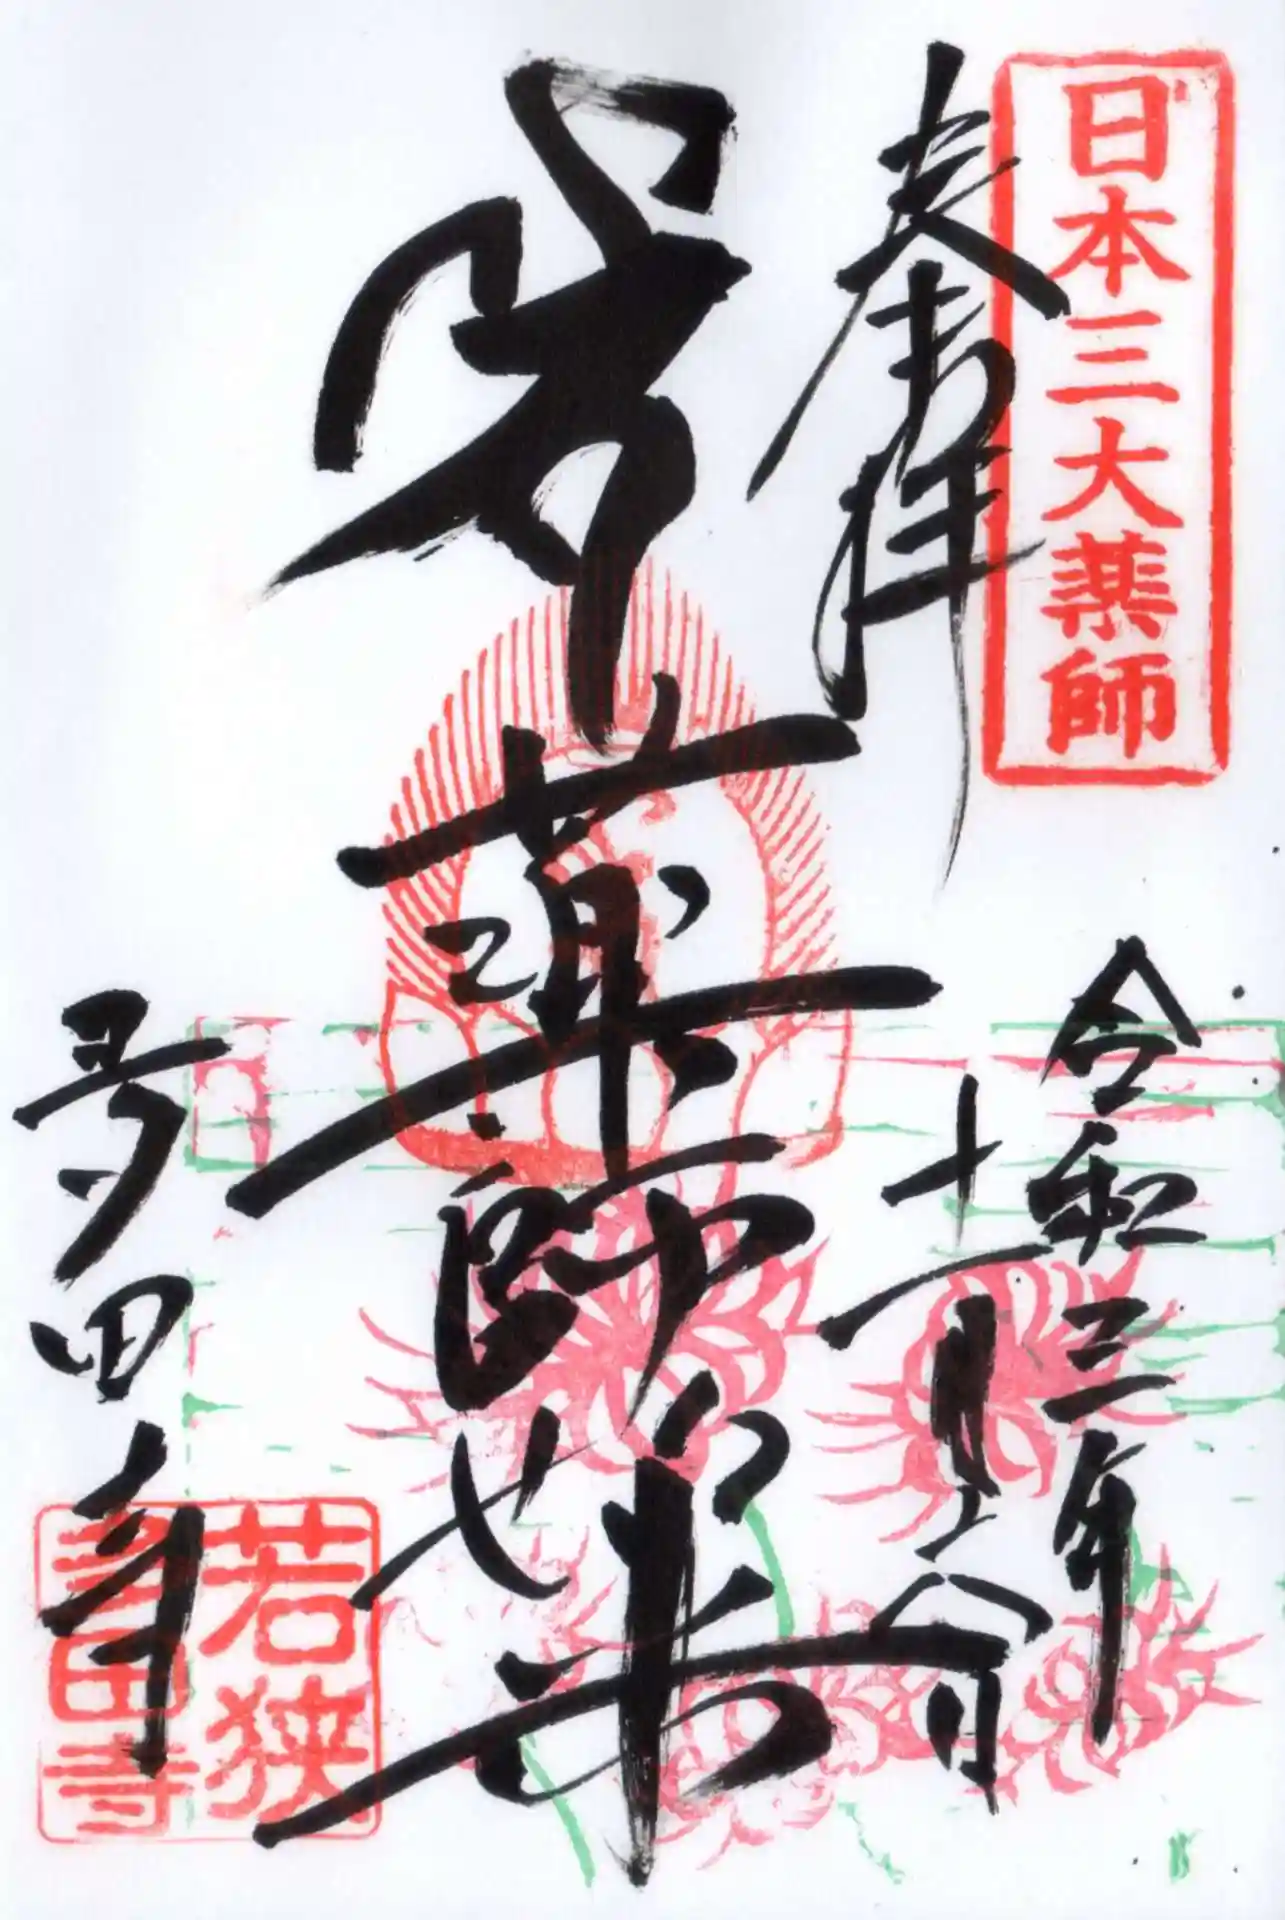 日本三大薬師
奉拝
令和三年
十一月 八日
薬師如来
多田寺
若狭
多田寺